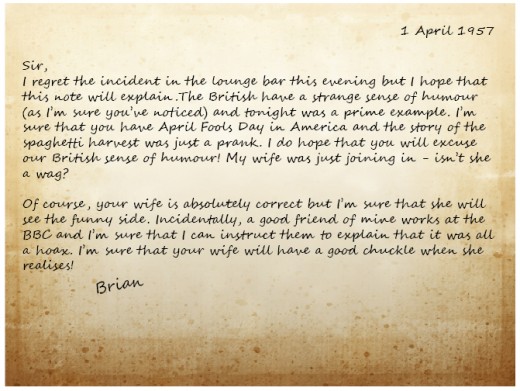 1 April 1957
Sir,
I regret the incident in the lounge bar this evening but I hope that
this note will explain.The British have a strange sense of humour
(as I'm sure you've noticed) and tonight was a prime example. I'm
sure that you have April Fools Day in America and the story of the
spaghetti harvest was just a prank. I do hope that you will excuse
our British sense of humour! My wife was just joining in - isn't she
a wag?
Of course, your wife is absolutely correct but I'm sure that she will
see the funny side. Incidentally, a good friend of mine works at the
BBC and I'm sure that I can instruct them to explain that it was all
a hoax. I'm sure that your wife will have a good chuckle when she
realises!
Brian